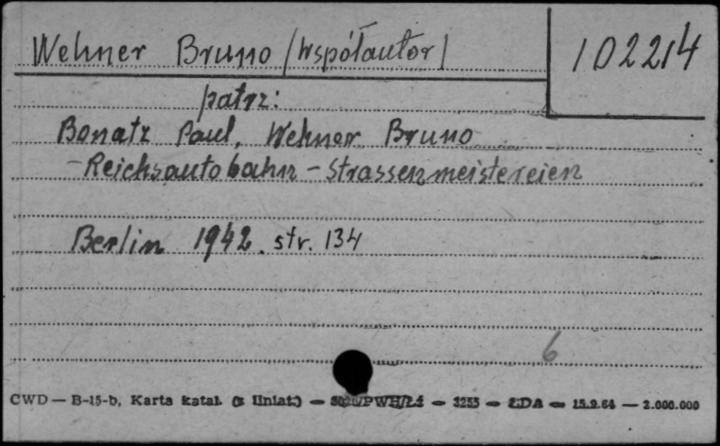 Wehner Bruno /Współautor/ 102214
patrz:
Bonatz Paul, Wehner Bruno
- Reichsautobahn - Strassenmeistereien
Berlin 1942. str. 134
6
CWD — B-15-b, Karta katal. (z liniat.) — PWH/Łź — 3255 — ŁDA — 15.9.64 — 2.000.000